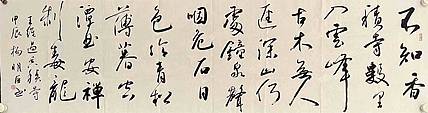 不知香
積寺數里
入雲峰
古木無人
逕深山何
處鐘泉聲
咽危石日
色冷青松
薄暮空
潭曲安禪
制毒龍
王維過香積寺
甲辰楊明